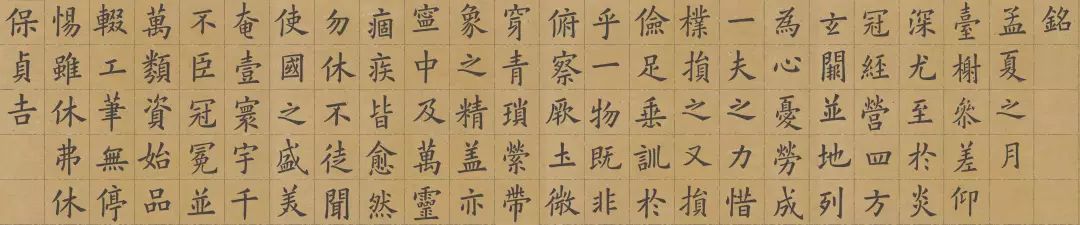 銘
孟夏之月
臺榭參差仰
深尤至於炎
冠經營四方
玄闕並地列
為心憂勞成
一夫之力惜
樸損之又損
儉足垂訓於
乎一物既非
俯察厥土微
穿青瑣縈帶
象之精盖亦
寧中及萬靈
痼疾皆愈然
勿休不徒聞
使國之盛美
奄壹寰宇千
不臣冠冕並
萬類資始品
輟工筆無停
惕雖休弗休
保貞吉